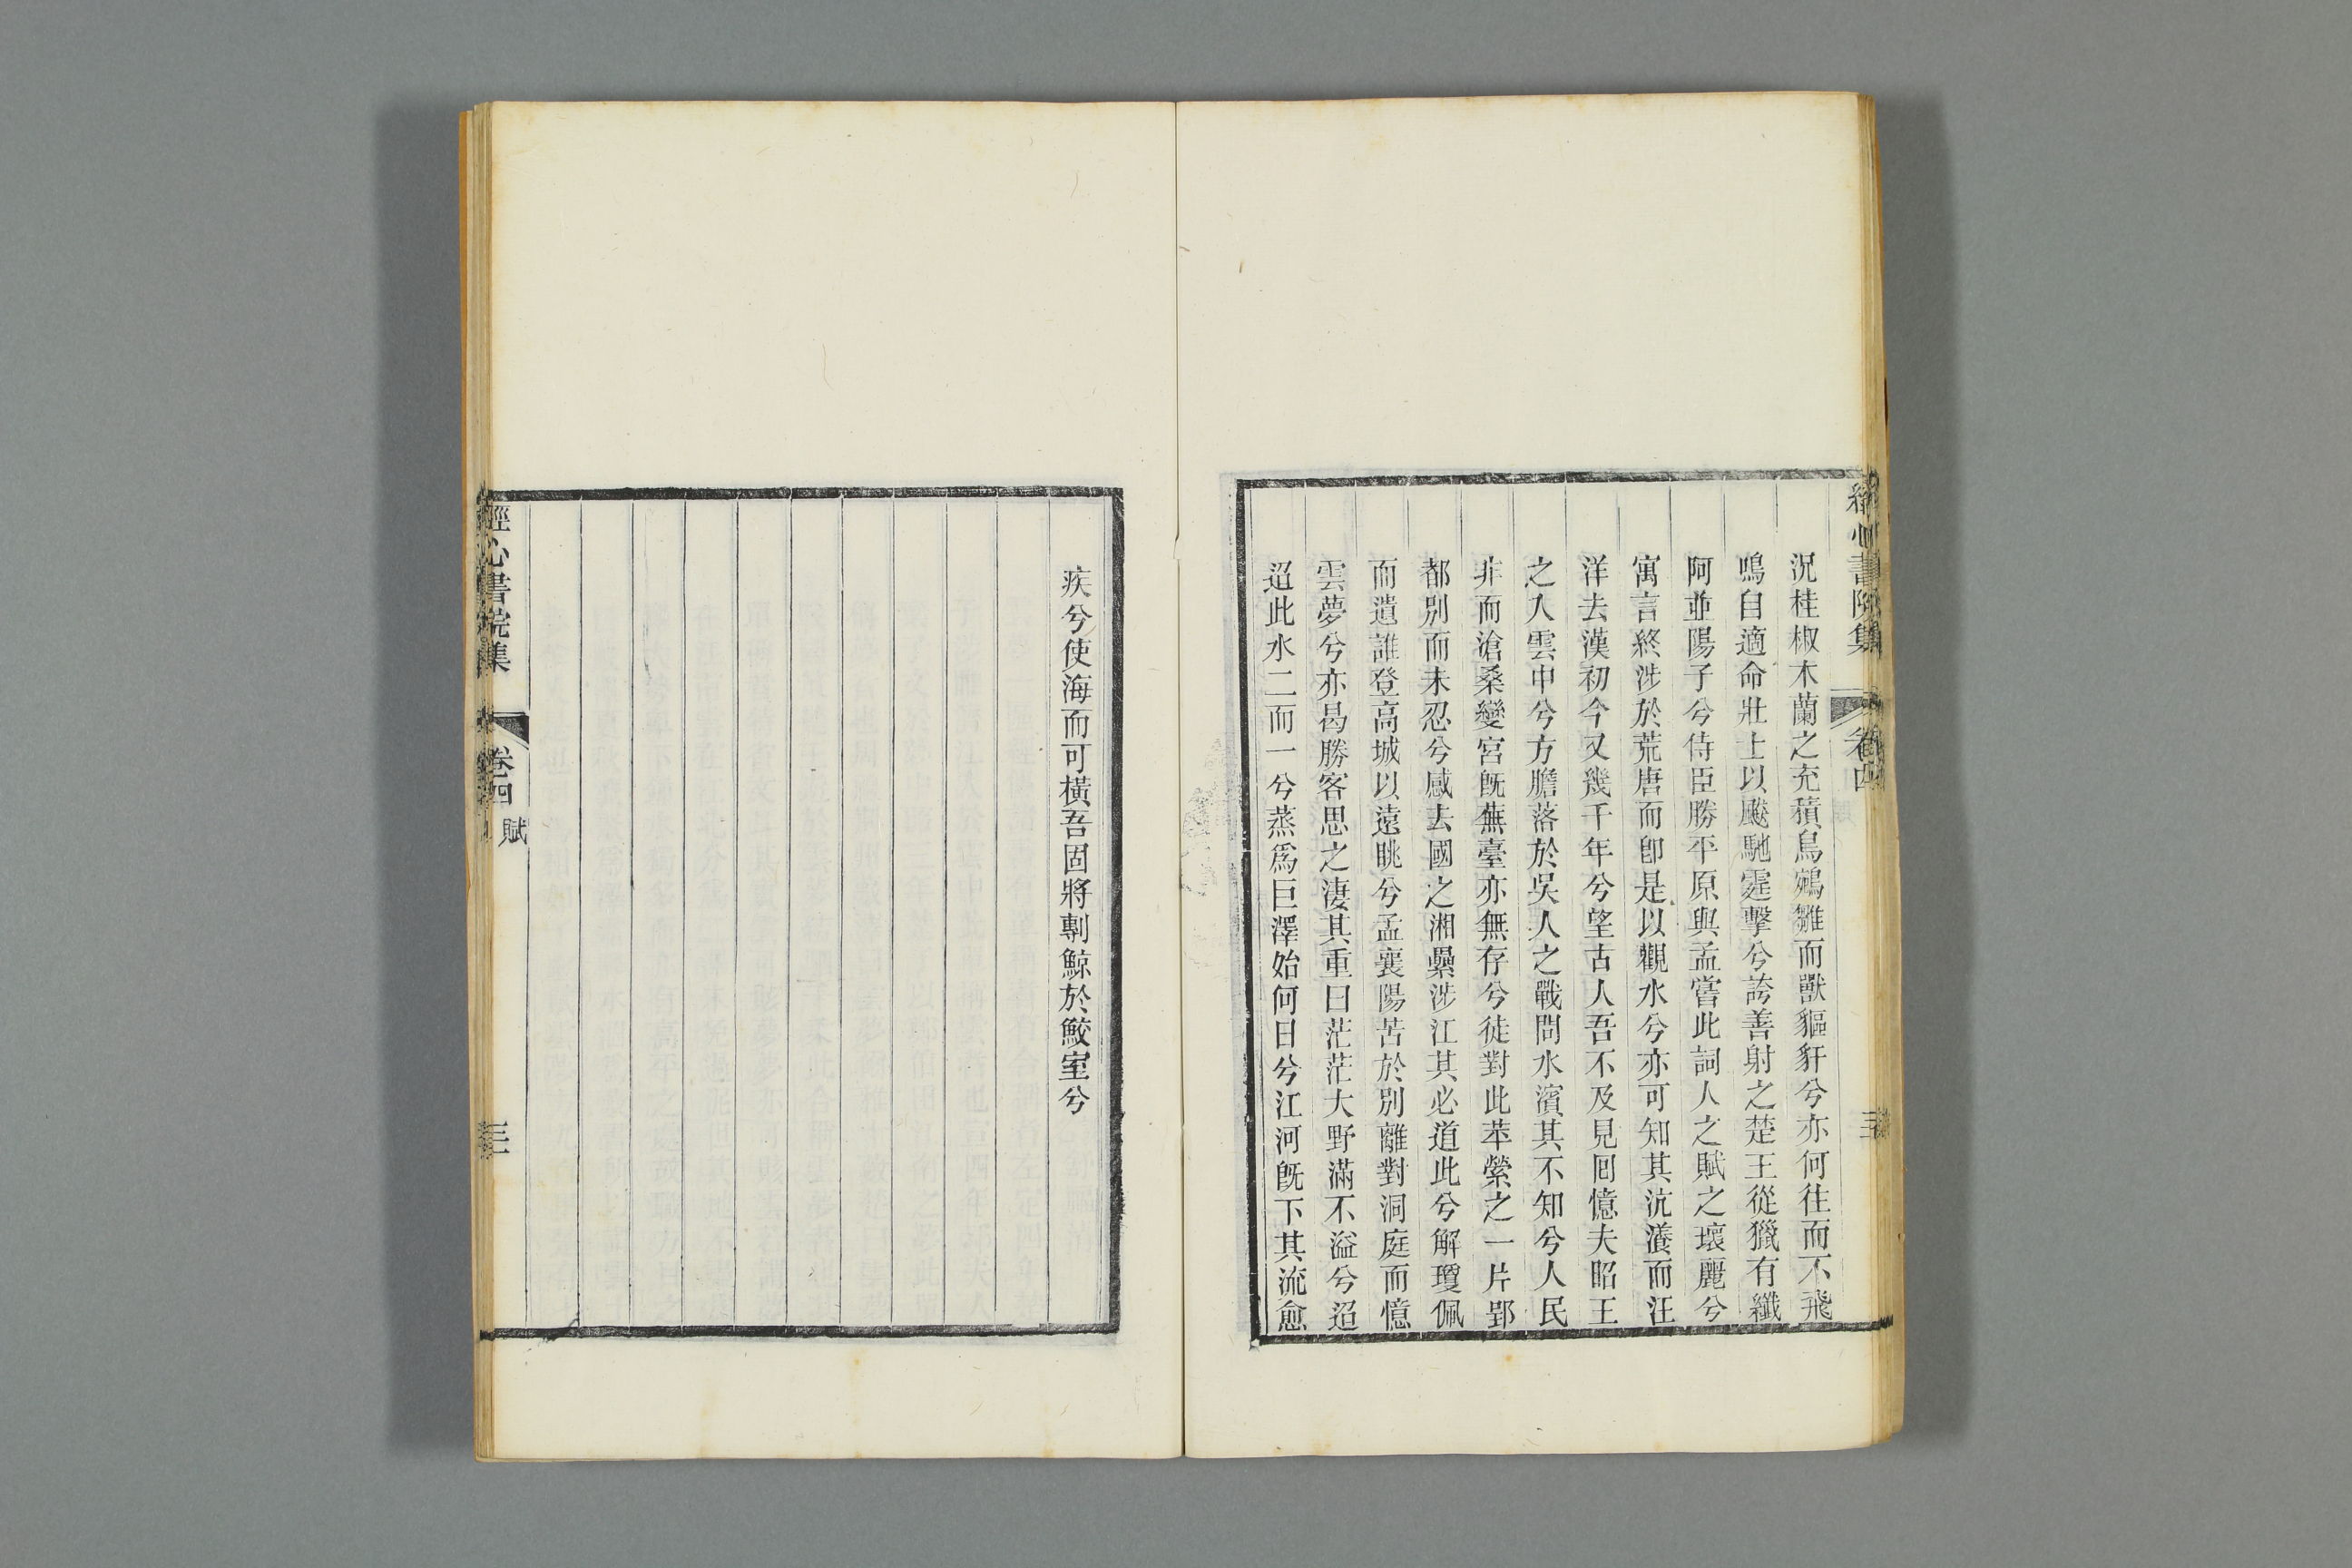 經心書院集
卷四
三
況桂椒木蘭之充積鳥鵷雛而獸貙豻兮亦何往而不飛
鳴自適命壯士以飈馳霆擊兮誇善射之楚王從獵有纖
阿並陽子兮侍臣勝平原與孟嘗此詞人之賦之瓌麗兮
寓言終涉於荒唐而卽是以觀水兮亦可知其沆瀁而汪
洋去漢初今又幾千年兮望古人吾不及見囘憶夫昭王
之人雲中兮方膽落於吳人之戰問水濱其不知兮人民
非而滄桑變宮旣蕪臺亦無存兮徒對此苹縈之一片郢
都別而未忍兮感去國之湘纍涉江其必道此兮解瓊佩
而遺誰登高城以遠眺兮孟襄陽苦於別離對洞庭而憶
雲夢兮亦曷勝客思之淒其重曰茫茫大野滿不溢兮迢
迢此水二而一兮蒸爲巨澤始何日兮江河旣下其流愈
疾兮使海而可橫吾固將剸鯨於鮫室兮
經心書院集
卷四
賦
三